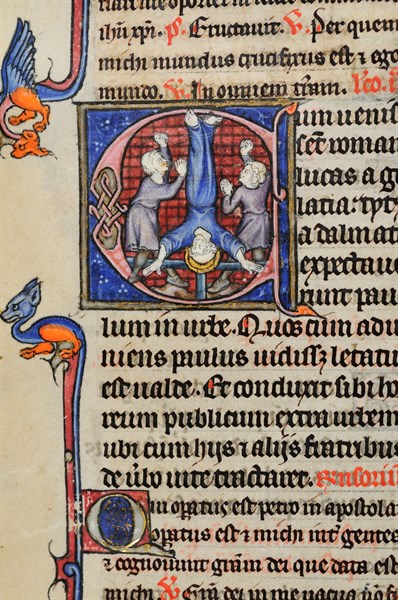 oportet in
ihũ xp̃i. p̃. Eructauit. V̷. Per quem
michi mundus crucifixus est ⁊ ego
mundo. V̷. In omnem tr̃am. Lc̃o. ii
Cum uenis
sẽt roma
lucas a g
latia: tyt
a dalmat
expectaue
runt pau
lum in urbe. Quos cum adu
niens paulus uidiss; letatu
est ualde. Et conduxit sibi ho
reum publicum extra urbem
ubi cum hijs ⁊ alijs fratribus
de ũbo uite tractaret. Rensoriũ
Qui op̃atus est petro in apostola
op̃atus est ⁊ michi int̃ gentes
⁊ cognouũnt gr̃am dei que data est
michi V̷ Gr̃a dei in me uacua nõ